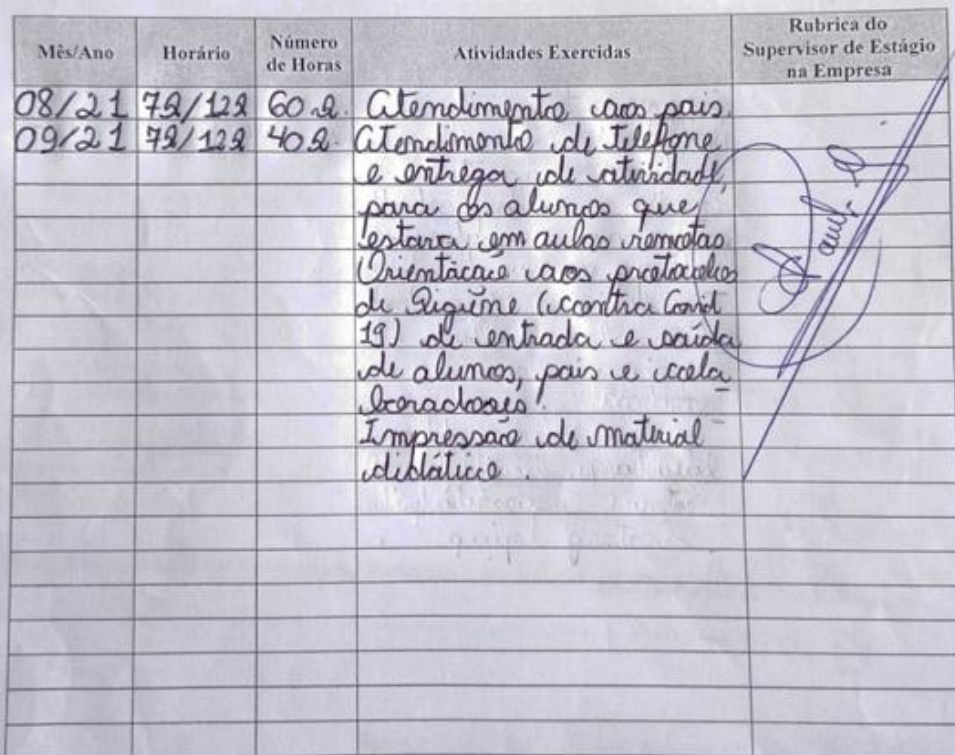 Mês/Ano Horário Número de Horas Atividades Exercidas Rubrica do Supervisor de Estágio na Empresa
08/21 7h/12h 60h. Atendimento aos pais.
09/21 7h/12h 40h. Atendimento de telefone
e entrega de atividade,
para os alunos que
estava em aulas remotas
Orientação aos protocolos
de Higiene (contra Covid
19) de entrada e saída
de alunos, pais e cola
boradores.
Impressão de material
didático.